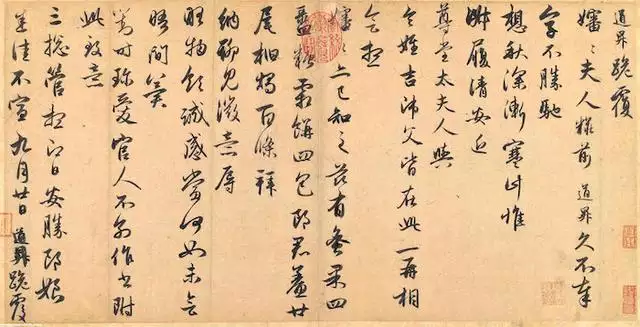 道昇跪覆
嬸〻夫人粧前道昇久不奉
字不勝馳
想秋深漸寒計惟
淑履清安近
尊堂太夫人與
令姪吉師父皆在此一再相
會想
嬸〻亦已知之茲有蜜果四
盝糖霜餅四包郎君鯗廿
尾柏燭百條拜
納聊見微意辱
物領誠感當何如未會
晤間冀
對時珍愛官人不別作書附
此致意
三總管想即日安勝郎娘
悉佳不宣九月廿日道昇跪覆